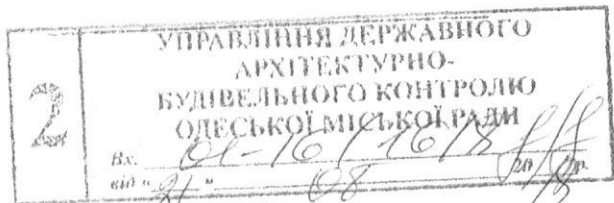 2
УПРАВЛІННЯ ДЕРЖАВНОГО
АРХІТЕКТУРНО-
БУДІВЕЛЬНОГО КОНТРОЛЮ
ОДЕСЬКОЇ МІСЬКОЇ РАДИ
Вх. 01-16/16
від "21" 08 20 р.